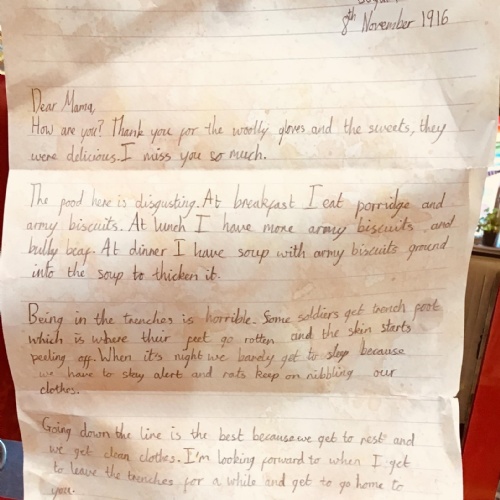 8th November 1916
Dear Mama,
How are you? Thank you for the woolly gloves and the sweets, they
were delicious. I miss you so much.
The food here is disgusting. At breakfast I eat porridge and
army biscuits. At lunch I have more army biscuits and
bully beaf. At dinner I have soup with army biscuits ground
into the soup to thicken it.
Being in the trenches is horrible. Some soldiers get trench foot
which is where thuir feet go rotten and the skin starts
peeling off. When it's night we barely get to sleep because
we have to stay alert and rats keep on nibbling our
clothes.
Going down the line is the best because we get to rest and
we get clean clothes. I'm looking forward to when I get
to leave the trenches for a while and get to go home to
you.